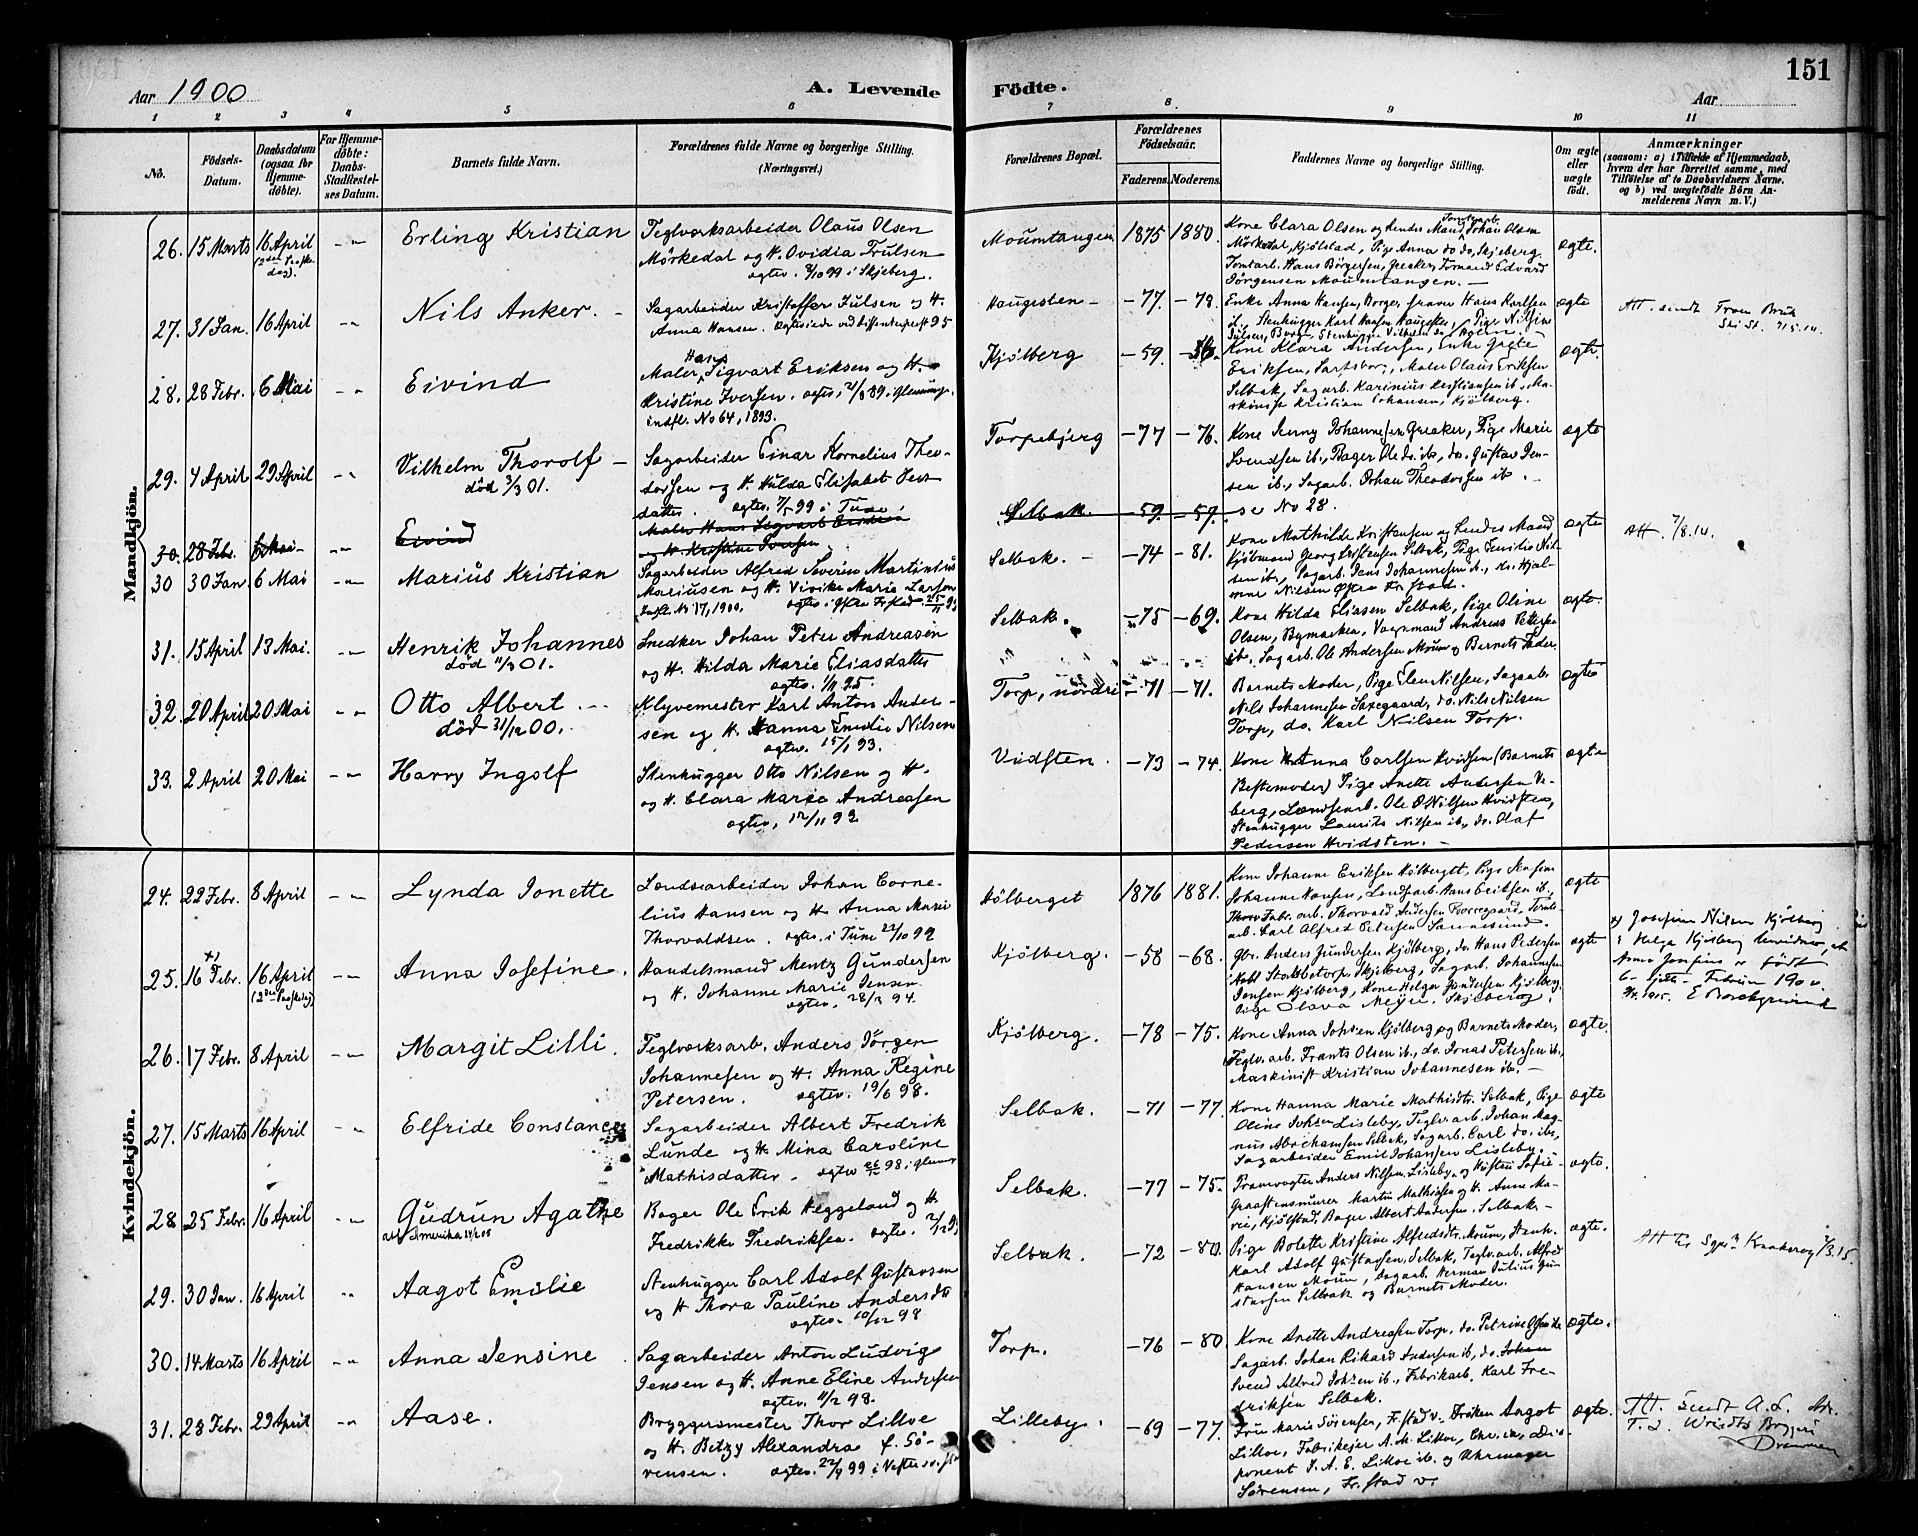 151
Aar 1900
A. Levende
Födte.
Aar
1 2 3 4 5 6 7 8. 9 10 11
No.
Födsels-
Datum.
Daabsdatum
(ogsaa for
Hjemme-
døbte).
For Hjemme-
døbte:
Daabs-
Stadfæstel-
ses Datum.
Barnets fulde Navn.
Forældrenes fulde Navne og borgerlige Stilling.
(Næringsvei.)
Forældrenes Bopæl.
Forældrenes
Födselsaar.
Faderens. Moderens.
Faddernes Navne og borgerlige Stilling.
Om ægte
eller
uægte
født.
Anmærkninger
(saasom: a) i Tilfælde af Hjemmedaab,
hvem der har forrettet samme, med
Tilføielse af to Daabsvidners Navne,
og b) ved uægtefødte Børn An-
melderens Navn m. V.)
Mandkjön.
26. 15 Marts 16 April
(2den Paaske-
dag).
Erling Kristian
Teglværksarbeider Olaus Olsen
Mörkedal og H. Ovidia Trulsen
ægtev. 8/10 99 i Skjeberg.
Moumtangen 1875 1880.
Kone Clara Olsen og hendes Mand Johan Olsen
Mörkedal, Kjölstad, Pige Anna do do, Skjeberg
Tomtarb. Hans Börgersen, Greaker, Formand Edvard
Jörgensen Moumtangen.
ægte.
27. 31 Jan. 16 April
Nils Anker.
Sagarbeider Kristoffer Julsen og H.
Anna Hansen.
Haugesten - 77. - 79.
Enke Anna Hansen, Borge,
ib., Stenhugger Karl Hansen Haugesten, Pige Nilsine
Julsen, Borge, Stenhugger Vilhelm do
ægte
Att. sendt
28. 28 Febr. 6 Mai
Eivind
Maler Hans Sigvart Eriksen og H.
Kristine Iversen. ægtev. 21/3 89 i Glemminge.
indfl. No 64, 1893.
Kjölberg - 59.
Kone Klara Andersen, Enke Grete
Eriksen, Sarpsborg, Maler Olaus Eriksen
Selbak, Sagarb. Karinius Kristiansen ib., Ma-
skinist Kristian Johansen, Kjölberg.
ægte.
29. 7 April 29 April
Vilhelm Thorolf
död 3/3 01.
Sagarbeider Einar Kornelius Theo-
dorsen og H. Hulda Elisabet Jens-
datter. ægtev. 7/5 99 i Tune
Torpebjerg - 77 - 76.
Kone Jenny Johannesen Greaker, Pige Marie
Svendsen ib., Bager Ole do ib., do. Gustav Jen-
sen ib., Sagarb. Johan Theodorsen ib.
ægte
30. 28 Feb. 6 Mai
Eivind
Maler Hans Sigvart Eriksen
og H. Kristine Iversen
Selbak. - 59. - 59. se No 28.
30 30 Jan 6 Mai
Marius Kristian
Sagarbeider Alfred Severin Martinius
Mariusen og H. Vivike Marie Larsen
Indfl. No 17, 1900.
Selbak. - 74 - 81.
Kone Mathilde Kristensen og hendes Mand
Kjöbmand Georg Kristensen Selbak, Pige Emilie Nil-
sen ib., Sagarb. Jens Johannesen ib., do. Hjal-
mar Nilsen Östra Fr.stad.
ægte
Att. 7/8.14.
31. 15 April 13 Mai.
Henrik Johannes
död 11/3 01.
Snedker Johan Peter Andreasen
og H. Hilda Marie Eliasdatter
ægtev. 1/11 95.
Selbak. - 75 - 69.
Kone Hilda Eliasen Selbak, Pige Oline
Olsen, Bymarken, Vognmand Andreas Pettersen
ib., Sagarb. Ole Andersen Moum og Barnets Fader
ægte.
32. 20 April 20 Mai
Otto Albert
död 31/12 00.
Klyvemester Karl Anton Ander-
sen og H. Hanna Emilie Nilsen
ægtev. 15/1 93.
Torp, nordre - 71 - 71.
Barnets Moder, Pige Elen Nilsen, Sagarb.
Nils Johannesen Saxegaard, do. Nils Nilsen
Torp, do. Karl Nilsen Torp.
ægte
33. 2 April 20 Mai
Harry Ingolf
Stenhugger Otto Nilsen og H.
og H. Clara Marie Andreasen
ægtev. 12/11 99
Vidsten. - 73 - 74.
Kone Anna Carlsen Hvidsten (Barnets
Bestemoder) Pige Anette Andersen Ve-
berg, Landsarb. Ole O. Nilsen Hvidsten,
Stenhugger Laurits Nilsen ib., do. Olaf
Pedersen Hvidsten.
ægte
Kvindekjön.
24. 22 Febr. 8 April
Lynda Jonette
Landsarbeider Johan Corne-
lius Hansen og H. Anna Marie
Thorvaldsen. ægtev. i Tune 22/10 99
Hölberget 1876 1881.
Kone Johanne Eriksen Hölberget, Pige
Johanne Hansen, Landsarb. Hans Eriksen ib.,
Fabr. arb. Thorvald Andersen Borregaard,
arb. Karl Alfred Petersen Sannesund.
ægte
25. 16 Febr. 16 April
(2den Paaskedag)
Anna Josefine.
Handelsmand Mentz Gundersen
og H. Johanne Marie Jensen
Kjölberg. - 58 - 68.
Gbr. Anders Gundersen Kjölberg, do. Hans Pedersen
Skjeberg, Sagarb. Johannes
Jensen Kjölberg, Kone Helga Gundersen Kjölberg
Pige Olava Meyer. Skjeberg.
ægte
x) Josefine Nilsen Kjölberg
i Helga Kjölberg bevidner, at
Anna Josefine er født
Februar 1900.
26. 17 Febr. 8 April
Margit Lilli.
Teglværksarb. Anders Jörgen
Johannesen og H. Anna Regine
Petersen. ægtev. 19/6 98.
Kjölberg. - 78 - 75.
Kone Anna Johsen Kjölberg og Barnets Moder,
Teglv.arb. Frants Olsen ib., do. Jonas Petersen ib.,
Maskinist Kristian Johannesen ib.
ægte.
27. 15 Marts 16 April
Elfride Constance
Sagarbeider Albert Fredrik
Lunde og H. Mina Caroline
Mathisdatter.
Selbak. - 71 - 77
Kone Hanna Marie Mathisdtr. Selbak, Pige
Oline Johsen Lisleby, Teglv.arb. Johan Mag-
nus Abrahamsen Selbak, Sagarb. Carl do. ib.,
Sagarbeider Emil Johansen Lisleby.
ægte
28. 25 Febr. 16 April
Gudrun Agathe
Bager Ole Erik Heggelund og H.
Fredrikke Fredriksen. ægtev.
Selbak. - 77 - 75.
Pramvogter Anders Nilsen Lisleby og Hustru Sofie
Graastensmurer Martin Mathisen og H. Anne Ma-
rie, Kjölstad, Bager Albert Andersen. Selbak.
ægte.
29. 30 Jan. 16 April
Aagot Emilie
Stenhugger Carl Adolf Gustavsen
og H. Thora Pauline Andersdtr
ægtev. 10/12 98
Selbak. - 72 - 80
Pige Bolette Kristine Alfredsdtr. Moum, Stenh.
Karl Adolf Gustavsen, Selbak, Teglv.arb. Alfred
Hansen Moum, Sagarb. Herman Julius Gu-
stavsen Selbak og Barnets Moder.
ægte.
30. 14 Marts 16 April
Anna Jensine
Sagarbeider Anton Ludvig
Jensen og H. Anne Eline Andersen
ægtev. 11/2 98.
Torp. - 76 - 80
Kone Anette Andreasen Torp, do. Petrine
Sagarb. Johan Rikard Andersen ib., do. Johan
Svend Alfred Johsen ib., Fabrikarb. Karl Fre-
driksen Selbak.
ægte.
31. 28 Febr. 29 April
Aase.
Bryggermester Thor Lilloe
og H. Betzy Alexandra f. Sö-
rensen.
Lilleby. - 69 - 77.
Fru Marie Sörensen, Fr.stad v. Fröken Aagot
Lilloe, Fabrikejer A. M. Lilloe, Chr.ia, Dis-
ponent J. A. E. Lilloe ib. og Uhrmager
Sörensen, Fr.stad v.
ægte.
Att. sendt A. L.
Bryggeri
Drammen